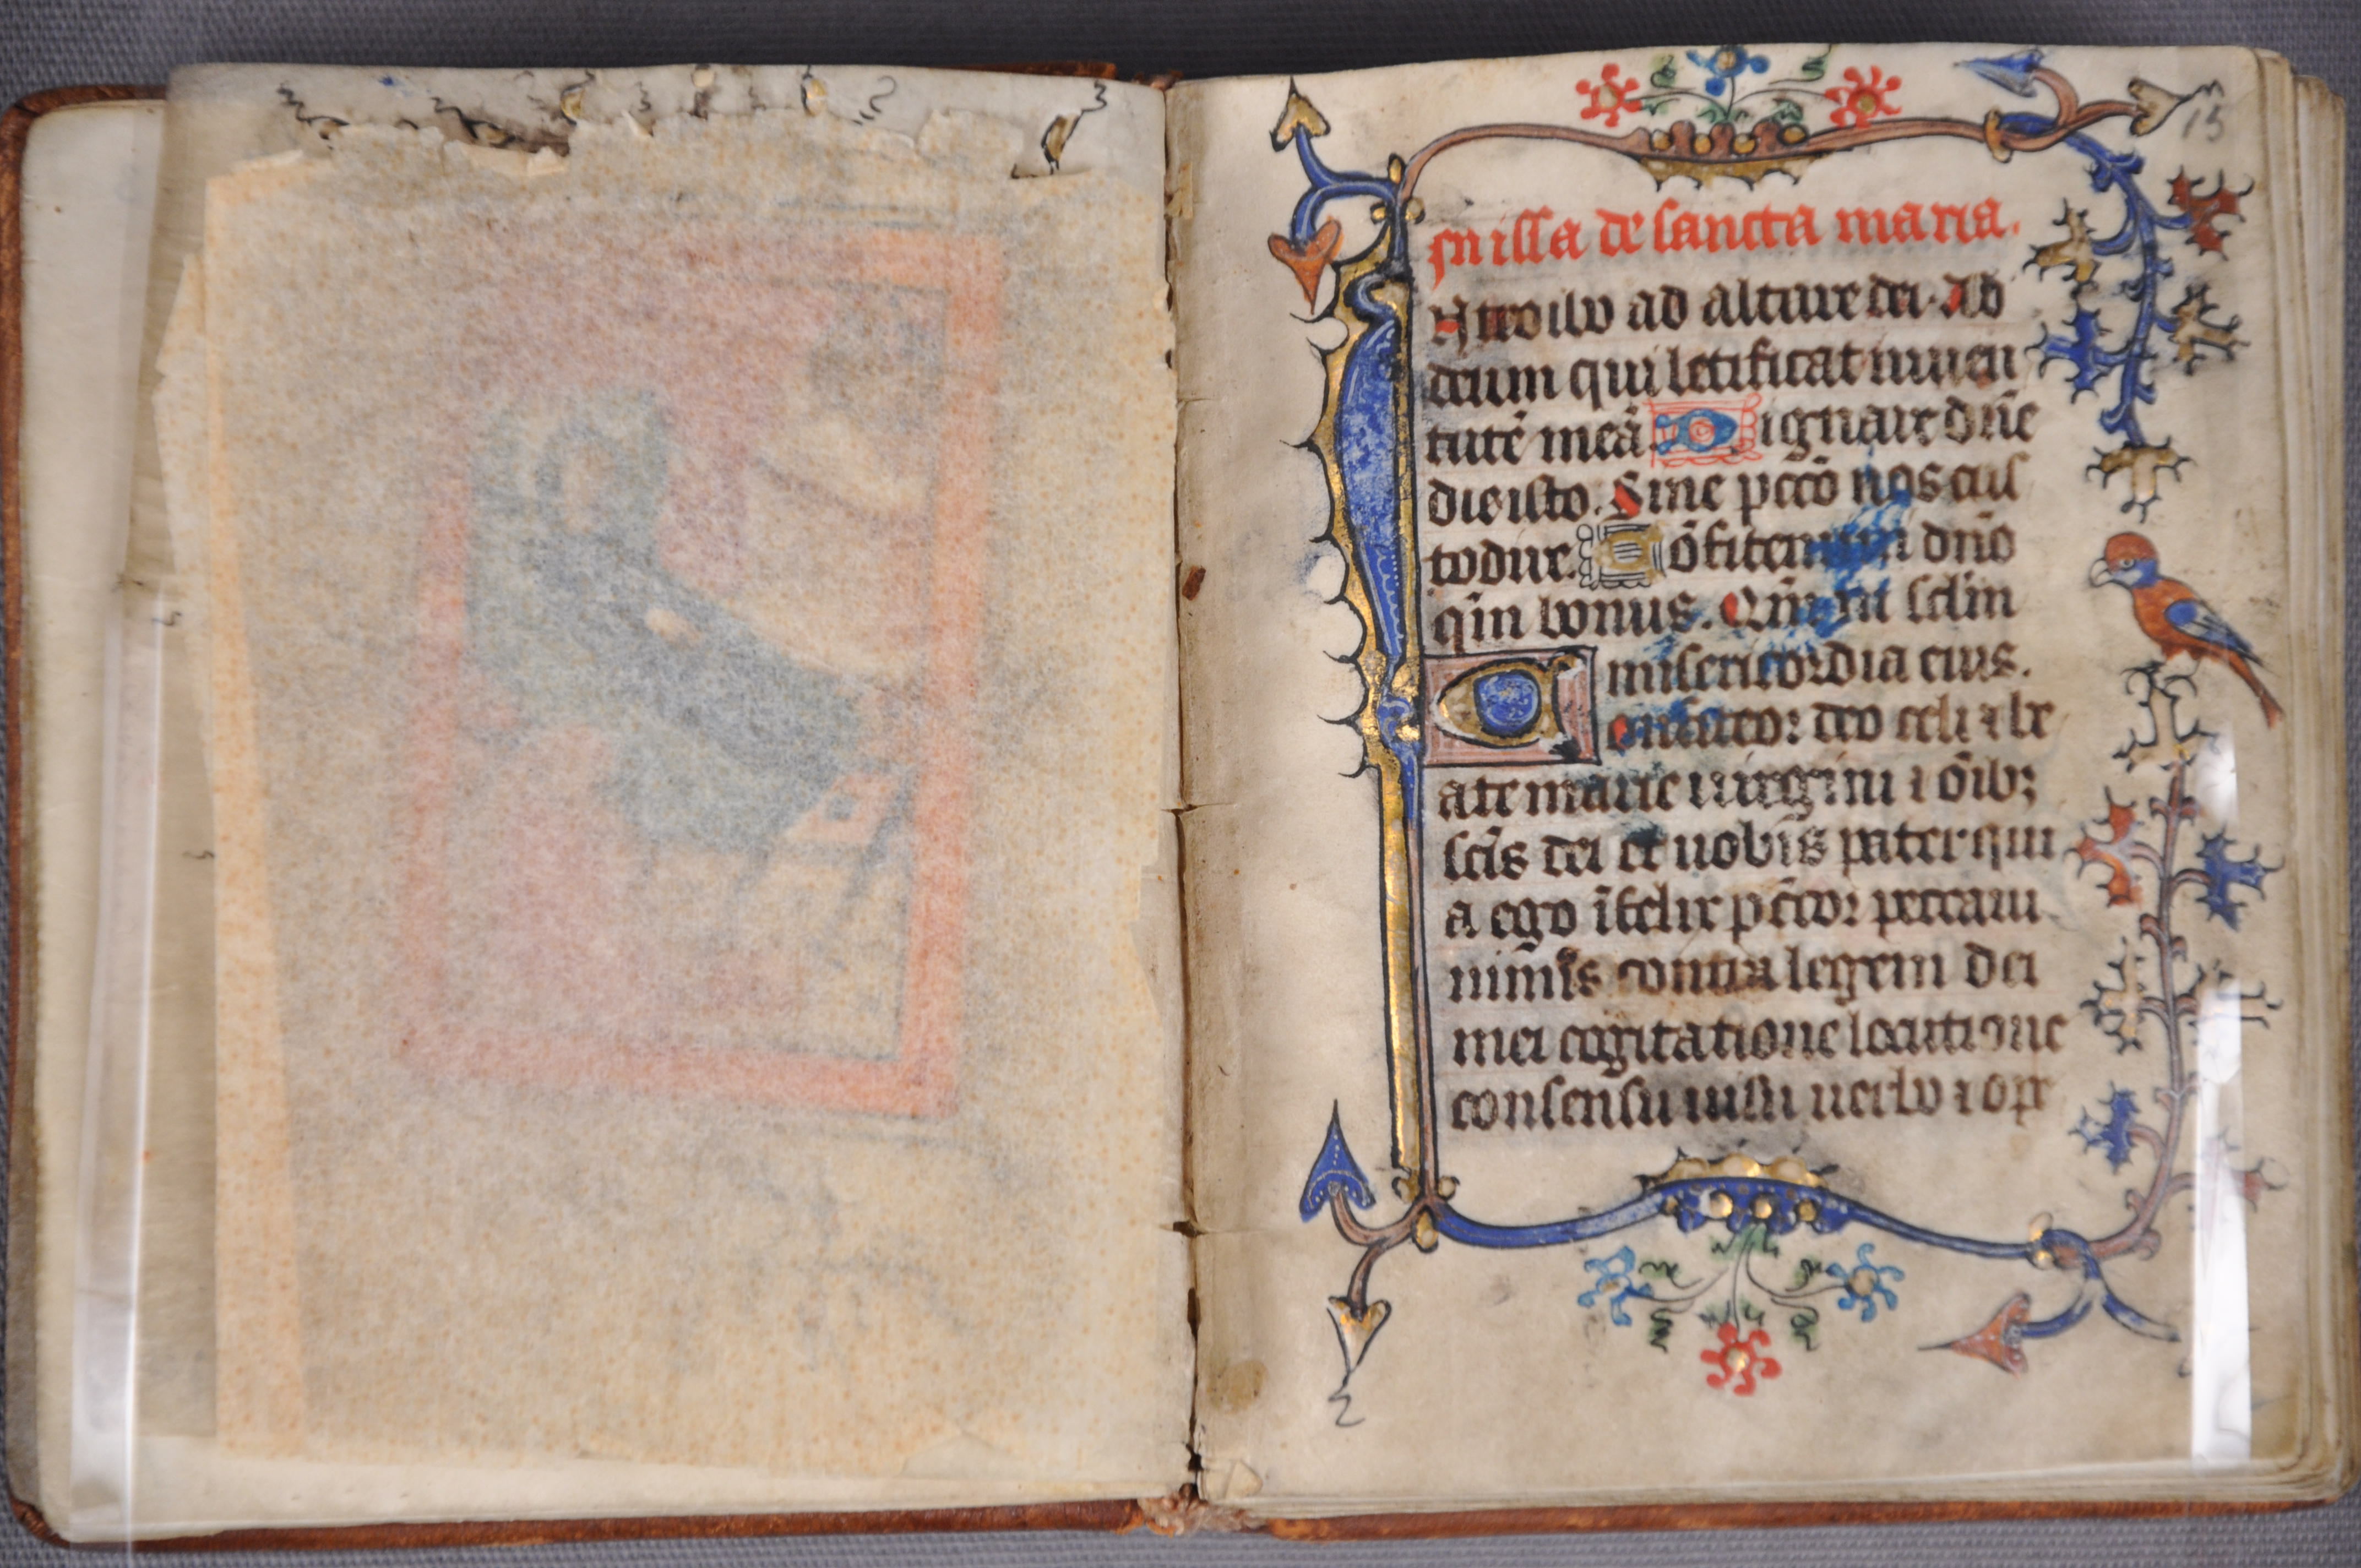 13
Missa de sancta maria.
Introibo ad altare dei. Ad
deum qui letificat iuuen
tutẽ meã Dignare dñe
die isto. Sine pccõ nos cus
todire. Cõfitemini dño
qm̃ bonus. Qm̃ in sclm
misericordia eius.
Confiteor deo celi ⁊ be
ate marie uirgini ⁊ õib;
scĩs dei et uobis pater qui
a ego ĩfelix pcc̃tor peccaui
nimis contra legem dei
mei cogitatione locutione
consensu uisu uerbo ⁊ ope